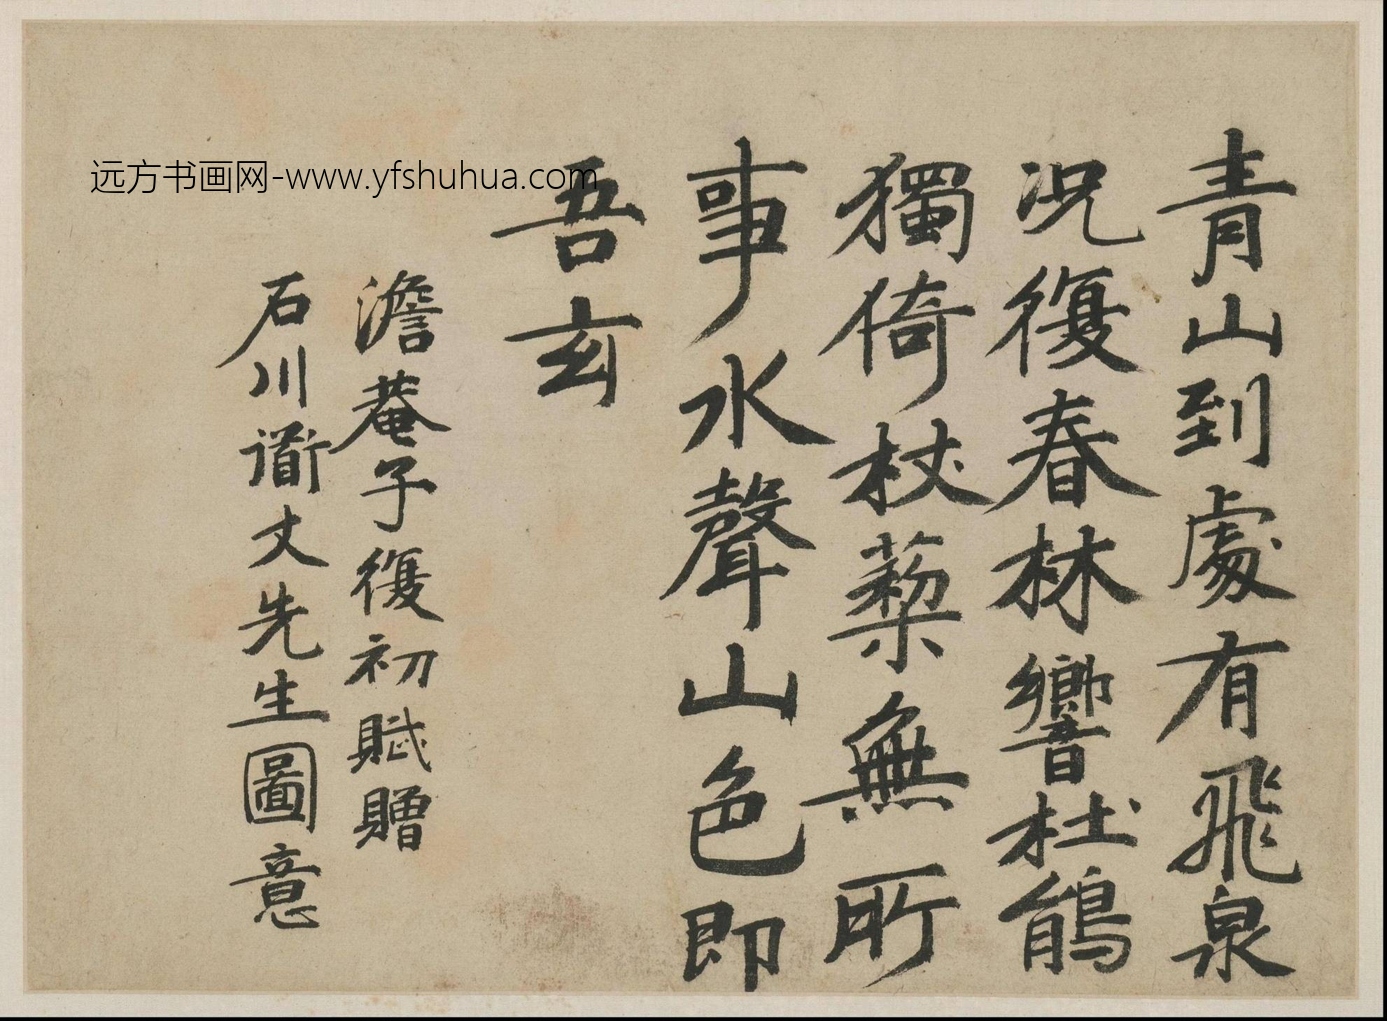 青山到處有飛泉
況復春林響杜鵑
獨倚杖藜無所
事水聲山色即
吾玄
澹菴子復初賦贈
石川道丈先生圖意
远方书画网-www.yfshuhua.com